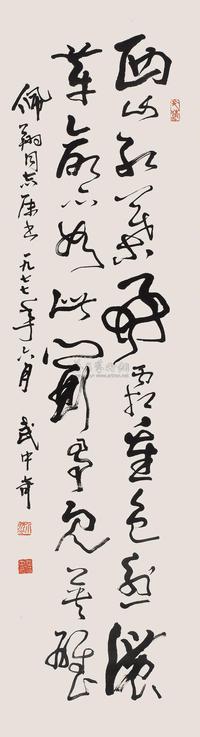 西山红葉好霜重色愈濃
革命亦如此鬥争见英雄
佩翔同志属书一九七七年六月 武中奇